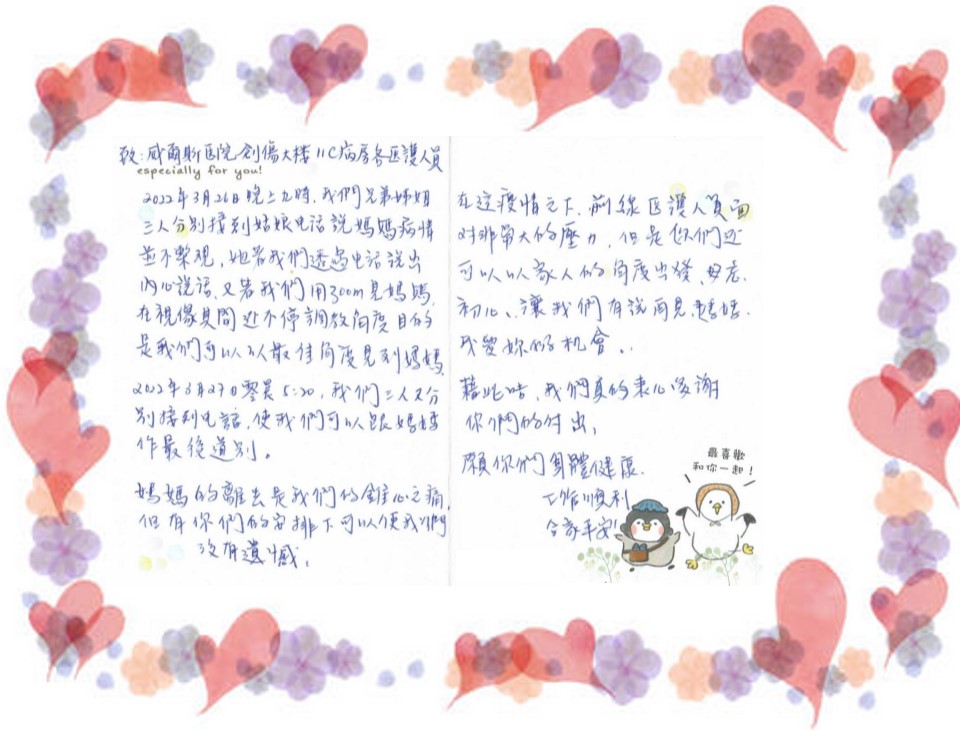 致:威爾斯医院創傷大楼11C病房各医護人員
especially for you!
2022年3月26日晚上九時,我們兄弟姊妹
三人分別接到姑娘电话說媽媽病情
並不樂观,她著我們透過电话說出
內心说话,又著我們用zoom見媽媽,
在視像期間还不停調教角度目的
是我們可以以最佳角度見到媽媽
2022年3月27日零晨5:20,我們三人又分
別接到电話,使我們可以跟媽媽
作最後道別。
媽媽的離去是我們的錐心之痛,
但有你們的安排下可以使我們
沒有遺憾,
在这疫情之下,前線医護人員面
对非常大的壓力,但是你們还
可以以家人的角度出發,毋忘
初心、讓我們有說再見,媽媽
我愛妳的机會..
藉此咭,我們真的衷心感謝
你們的付出,
願你們身體健康.
工作順利
合家平安!
最喜歡
和你一起!